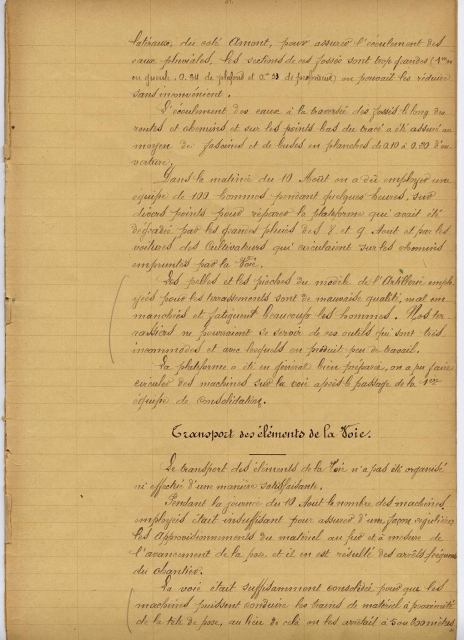 latéraux, du coté Amont, pour assurer l'écoulement des
eaux pluviales, les sections de ces fossés sont trop grandes (1m
en gueule, 0.34 de plafond et 0m33 de profondeur) on pouvait les réduire
sans inconvénient.
L'écoulement des eaux à la traversée des fossés le long des
routes et chemins et sur les points bas du tracé a été assuré au
moyen de fascines et de buses en planches de 0.10 à 0.20 d'ou-
verture.
Dans la matinée du 10 Août on a dû employer une
équipe de 100 hommes pendant quelques heures, sur
divers points pour réparer la plateforme qui avait été
dégradée par les grandes pluies des 8 et 9 Aout et par les
voitures des Cultivateurs qui circulaient sur les chemins
empruntés par la Voie.
Les pelles et les pioches du modèle de l'Artillerie emplo-
yées pour les terrassements sont de mauvaise qualité, mal em-
manchées et fatiguent beaucoup les hommes. Nos ter-
rassiers ne pourraient se servir de ces outils qui sont très
incommodes et avec lesquels on produit peu de travail.
La plateforme a été en général bien préparée, on a pu faire
circuler des machines sur la voie après le passage de la 1ère
équipe de consolidation.
Transport des éléments de la Voie.
Le transport des éléments de la Voie n'a pas été organisé
ni effectué d'une manière satisfaisante.
Pendant la journée du 10 Aout le nombre des machines
employées était insuffisant pour assurer d'une façon régulière
les approvisionnements du matériel au fur et à mesure de
l'avancement de la pose et il en est résulté des arrêts fréquents
du chantier.
La voie était suffisamment consolidée pour que les
machines puissent conduire les trains de matériel à proximité
de la tête de pose, au lieu de cela on les arrêtait à 500 ou mètres